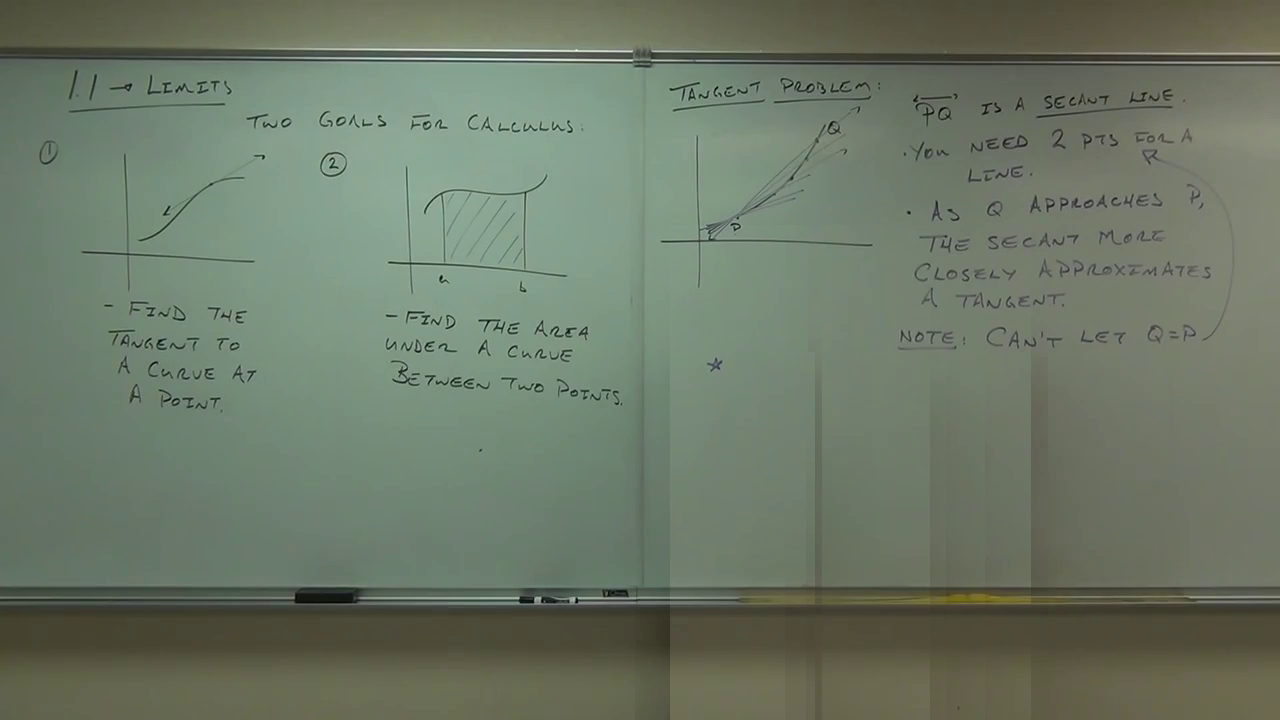 1.1 → LIMITS
TWO GOALS FOR CALCULUS:
①
②
a
b
- FIND THE
TANGENT TO
A CURVE AT
A POINT.
- FIND THE AREA
UNDER A CURVE
BETWEEN TWO POINTS.
TANGENT PROBLEM:
Q
P
PQ IS A SECANT LINE.
• YOU NEED 2 PTS FOR A
LINE.
• AS Q APPROACHES P,
THE SECANT MORE
CLOSELY APPROXIMATES
A TANGENT.
NOTE: CAN'T LET Q=P